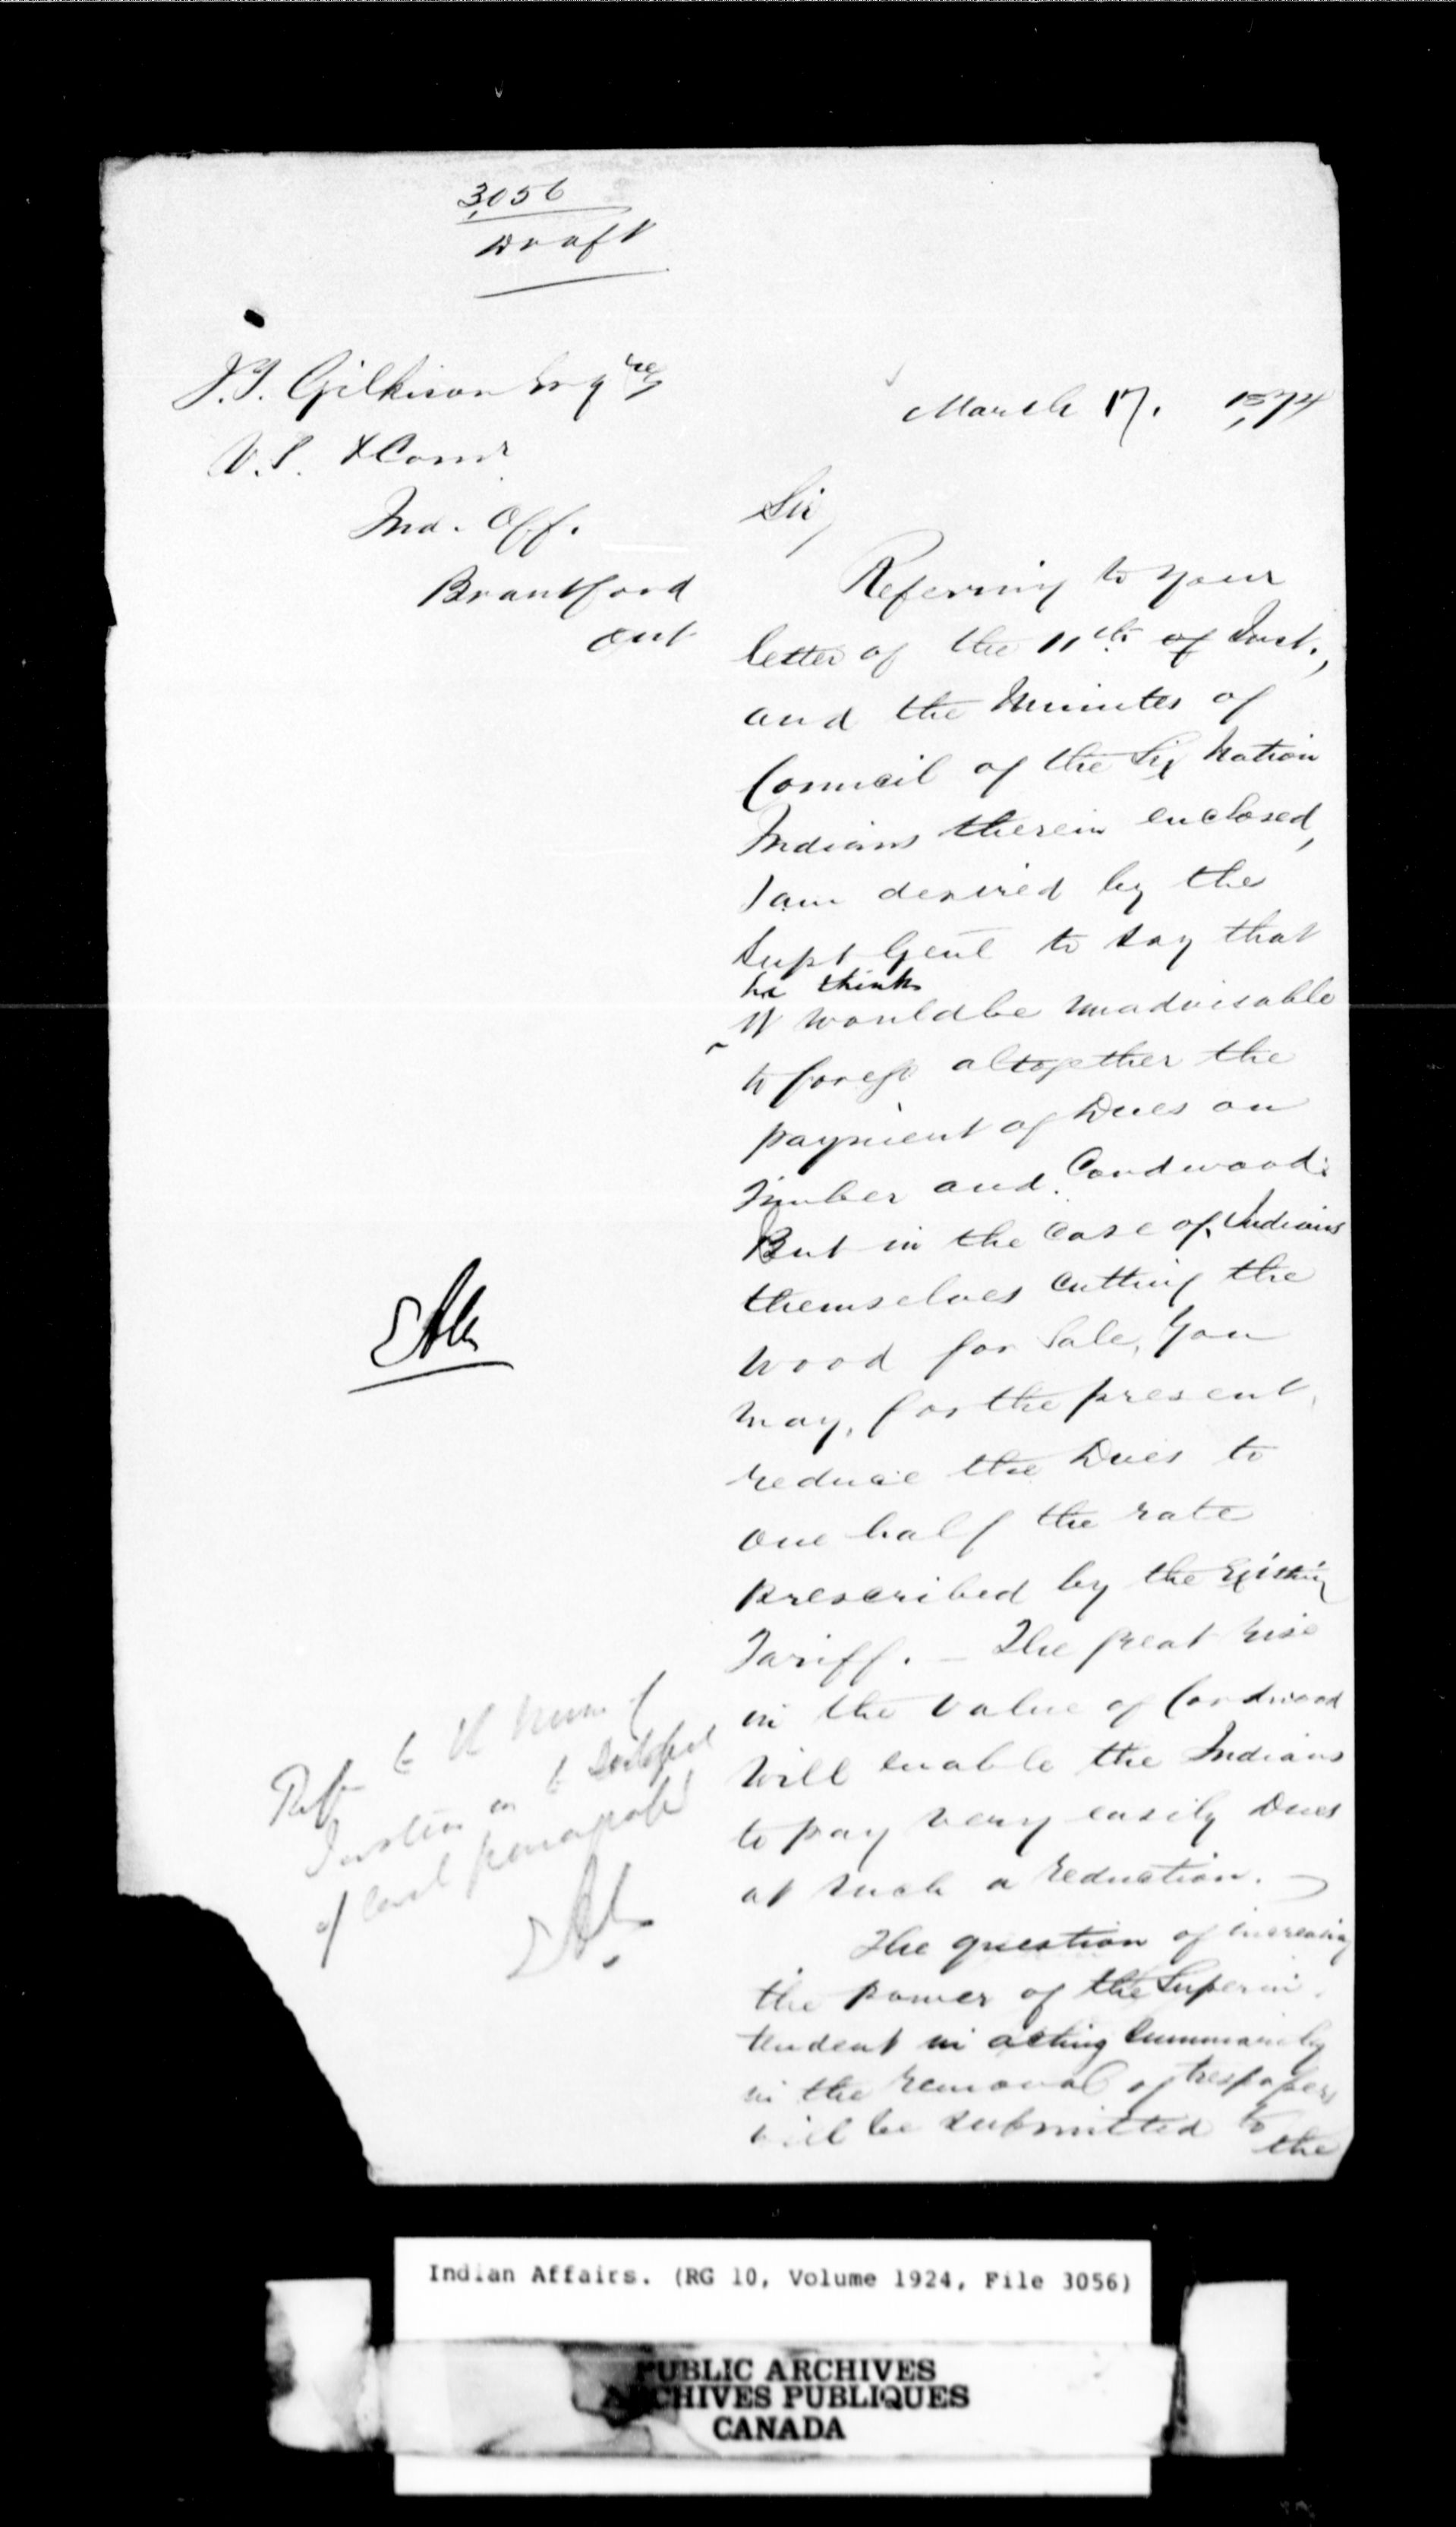 3,056
Draft
J.T. Gilkison Esqre
V.S. & Comr
Ind. Off.
Brantford
Ont
March 17. 1874
Sir,
Referring to your
letter of the 11th of Inst.,
and the Minutes of
Council of the Six Nation
Indians therein enclosed,
I am desired by the
Supt Genl to say that
he thinks
it would be unadvisable
to forego altogether the
payment of Dues on
Timber and Cordwood:
But in the case of Indians
themselves cutting the
wood for Sale, you
may, for the present,
reduce the Dues to
one half the rate
prescribed by the Existing
Tariff. – The great rise
in the value of Cordwood
will enable the Indians
to pay very easily Dues
at such a reduction. –
The question of increasing
the power of the Superin-
tendent in acting summarily
in the removal of trespassers
will be submitted to
the
Refer to the
of last paragraph
Indian Affairs. (RG 10, Volume 1924, File 3056)
PUBLIC ARCHIVES
ARCHIVES PUBLIQUES
CANADA